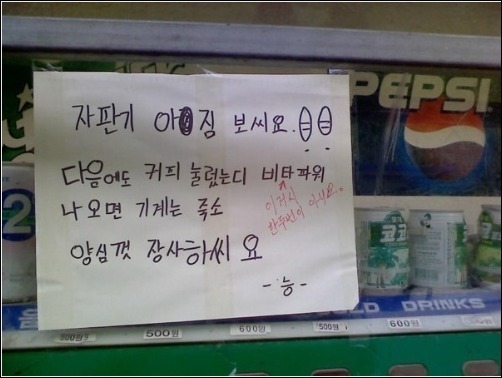 PEPSI
자판기 아짐 보씨요.
다음에도 커피 눌렀는디 비타파워
이거시
한두번이 아니요.
나오면 기계는 죽소
양심껏 장사하씨요
-능-
2
코코
DRINKS
500원
600원
500원
600원